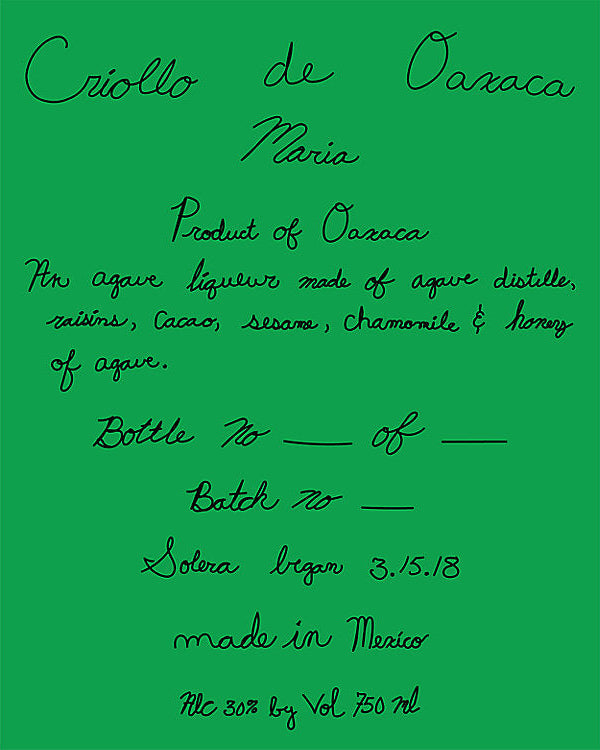 Criollo de Oaxaca
Maria
Product of Oaxaca
An agave liqueur made of agave distille,
raisins, cacao, sesame, chamomile & honey
of agave.
Bottle No ____ of ____
Batch no ____
Solera began 3.15.18
made in Mexico
Alc 30% by Vol 750 ml